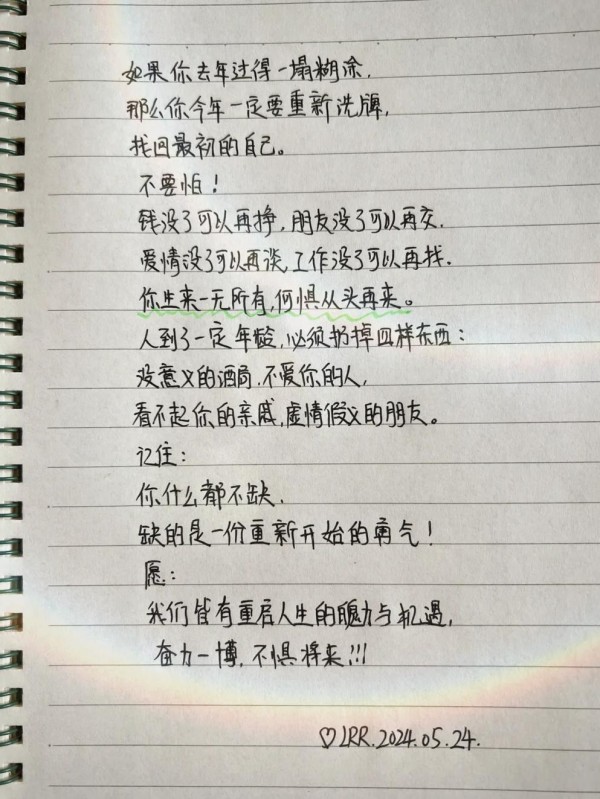 如果你去年过得一塌糊涂,
那么你今年一定要重新洗牌,
找回最初的自己。
不要怕！
钱没了可以再挣,朋友没了可以再交,
爱情没了可以再谈,工作没了可以再找.
你生来一无所有,何惧从头再来。
人到了一定年龄,必须扔掉四样东西：
没意义的酒局,不爱你的人,
看不起你的亲戚,虚情假义的朋友。
记住：
你什么都不缺.
缺的是一份重新开始的勇气！
愿：
我们皆有重启人生的魄力与机遇,
奋力一博,不惧将来!!!
♡LRR.2024.05.24.